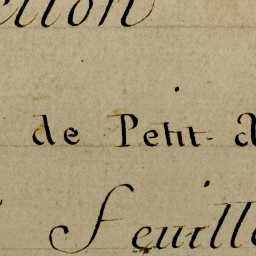 ellon
de Petit-
feuille